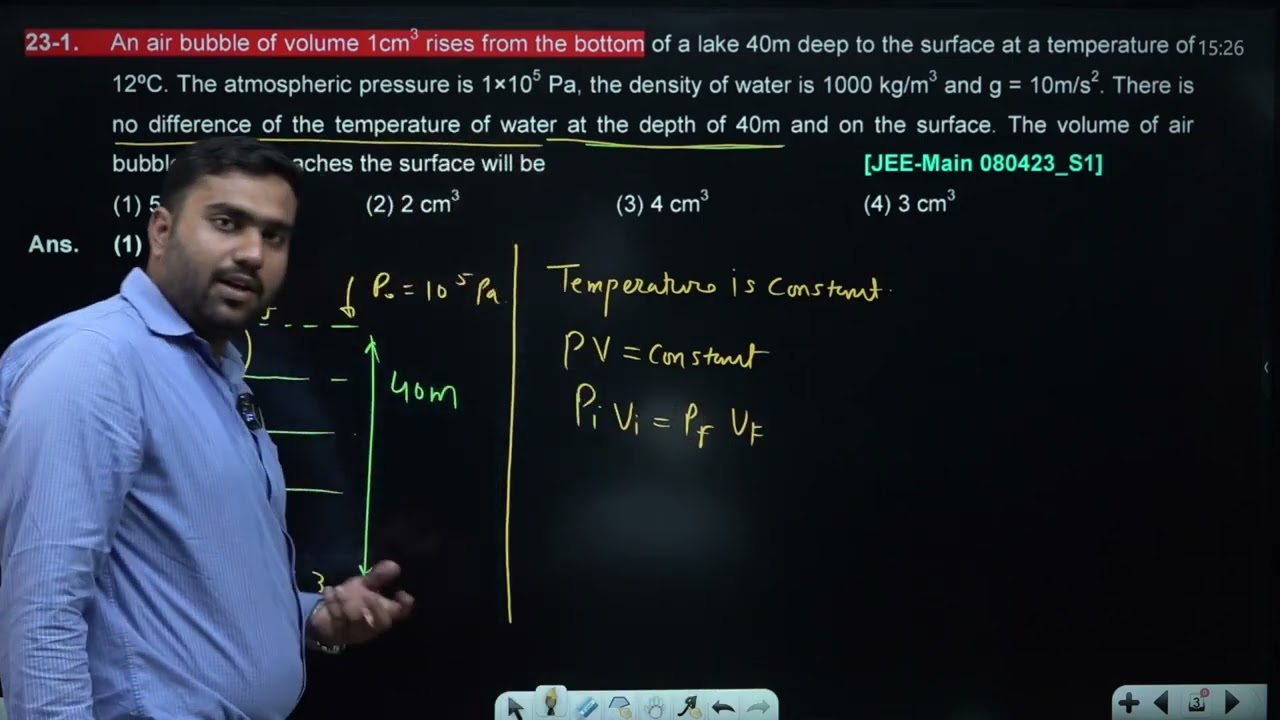 23-1. An air bubble of volume 1cm³ rises from the bottom of a lake 40m deep to the surface at a temperature of
15:26
12ºC. The atmospheric pressure is 1×10⁵ Pa, the density of water is 1000 kg/m³ and g = 10m/s². There is
no difference of the temperature of water at the depth of 40m and on the surface. The volume of air
bubble aches the surface will be [JEE-Main 080423_S1]
(1) 5 (2) 2 cm³ (3) 4 cm³ (4) 3 cm³
Ans. (1)
P₀ = 10⁵ Pa
5
40m
3
Temperature is constant.
PV = constant
Pᵢ Vᵢ = P_f V_F
3